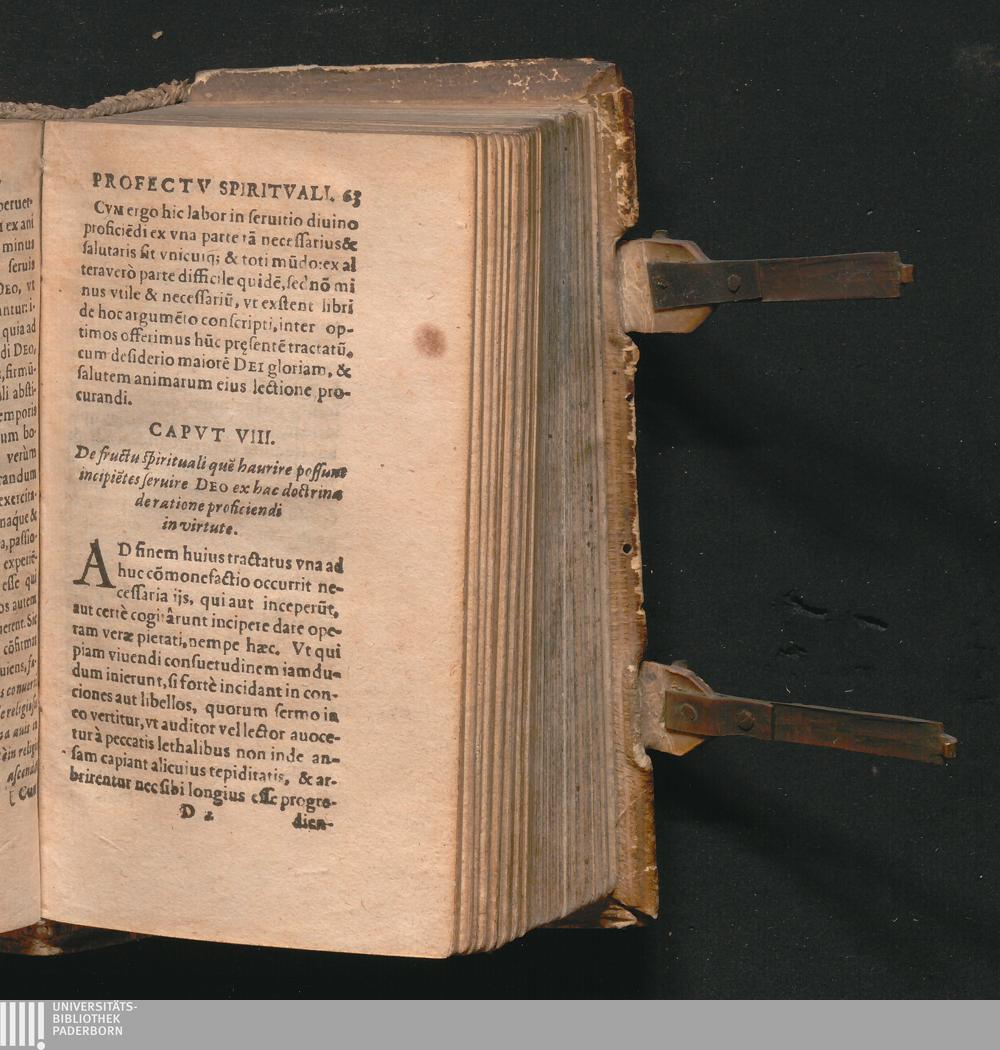 PROFECTV SPIRITVALI. 63
CVM ergo hic labor in ſeruitio diuino
proficiēdi ex vna parte tā neceſſarius &
ſalutaris ſit vnicuiq; & toti mūdo: ex al
tera verò parte difficile quidē, ſed nō mi
nus vtile & neceſſariū, vt exſtent libri
de hoc argumēto conſcripti, inter op-
timos offerimus hūc pręſentē tractatū,
cum deſiderio maiorē DEI gloriam, &
ſalutem animarum eius lectione pro-
curandi.
CAPVT VIII.
De fructu ſpirituali quē haurire poſſunt
incipiētes ſeruire DEO ex hac doctrina
de ratione proficiendi
in virtute.
AD finem huius tractatus vna ad
huc cōmonefactio occurrit ne-
ceſſaria ijs, qui aut inceperūt,
aut certè cogitârunt incipere dare ope-
ram veræ pietati, nempe hæc. Vt qui
piam viuendi conſuetudinem iamdu-
dum inierunt, ſi fortè incidant in con-
ciones aut libellos, quorum ſermo in
eo vertitur, vt auditor vel lector auoce-
tur à peccatis lethalibus non inde an-
ſam capiant alicuius tepiditatis, & ar-
brirentur nec ſibi longius eſſe progre-
D 2 dien-
ex ani
minus
ſeruis
DEO, vt
quia ad
di DEO,
firmū-
li abſti-
emporis
um bo-
verùm
randum
exercita-
naque &
a, paſſio-
experiē-
eſſe qui
os autem
herent. Sic
cōfirmat
E Cum
UNIVERSITÄTS-
BIBLIOTHEK
PADERBORN